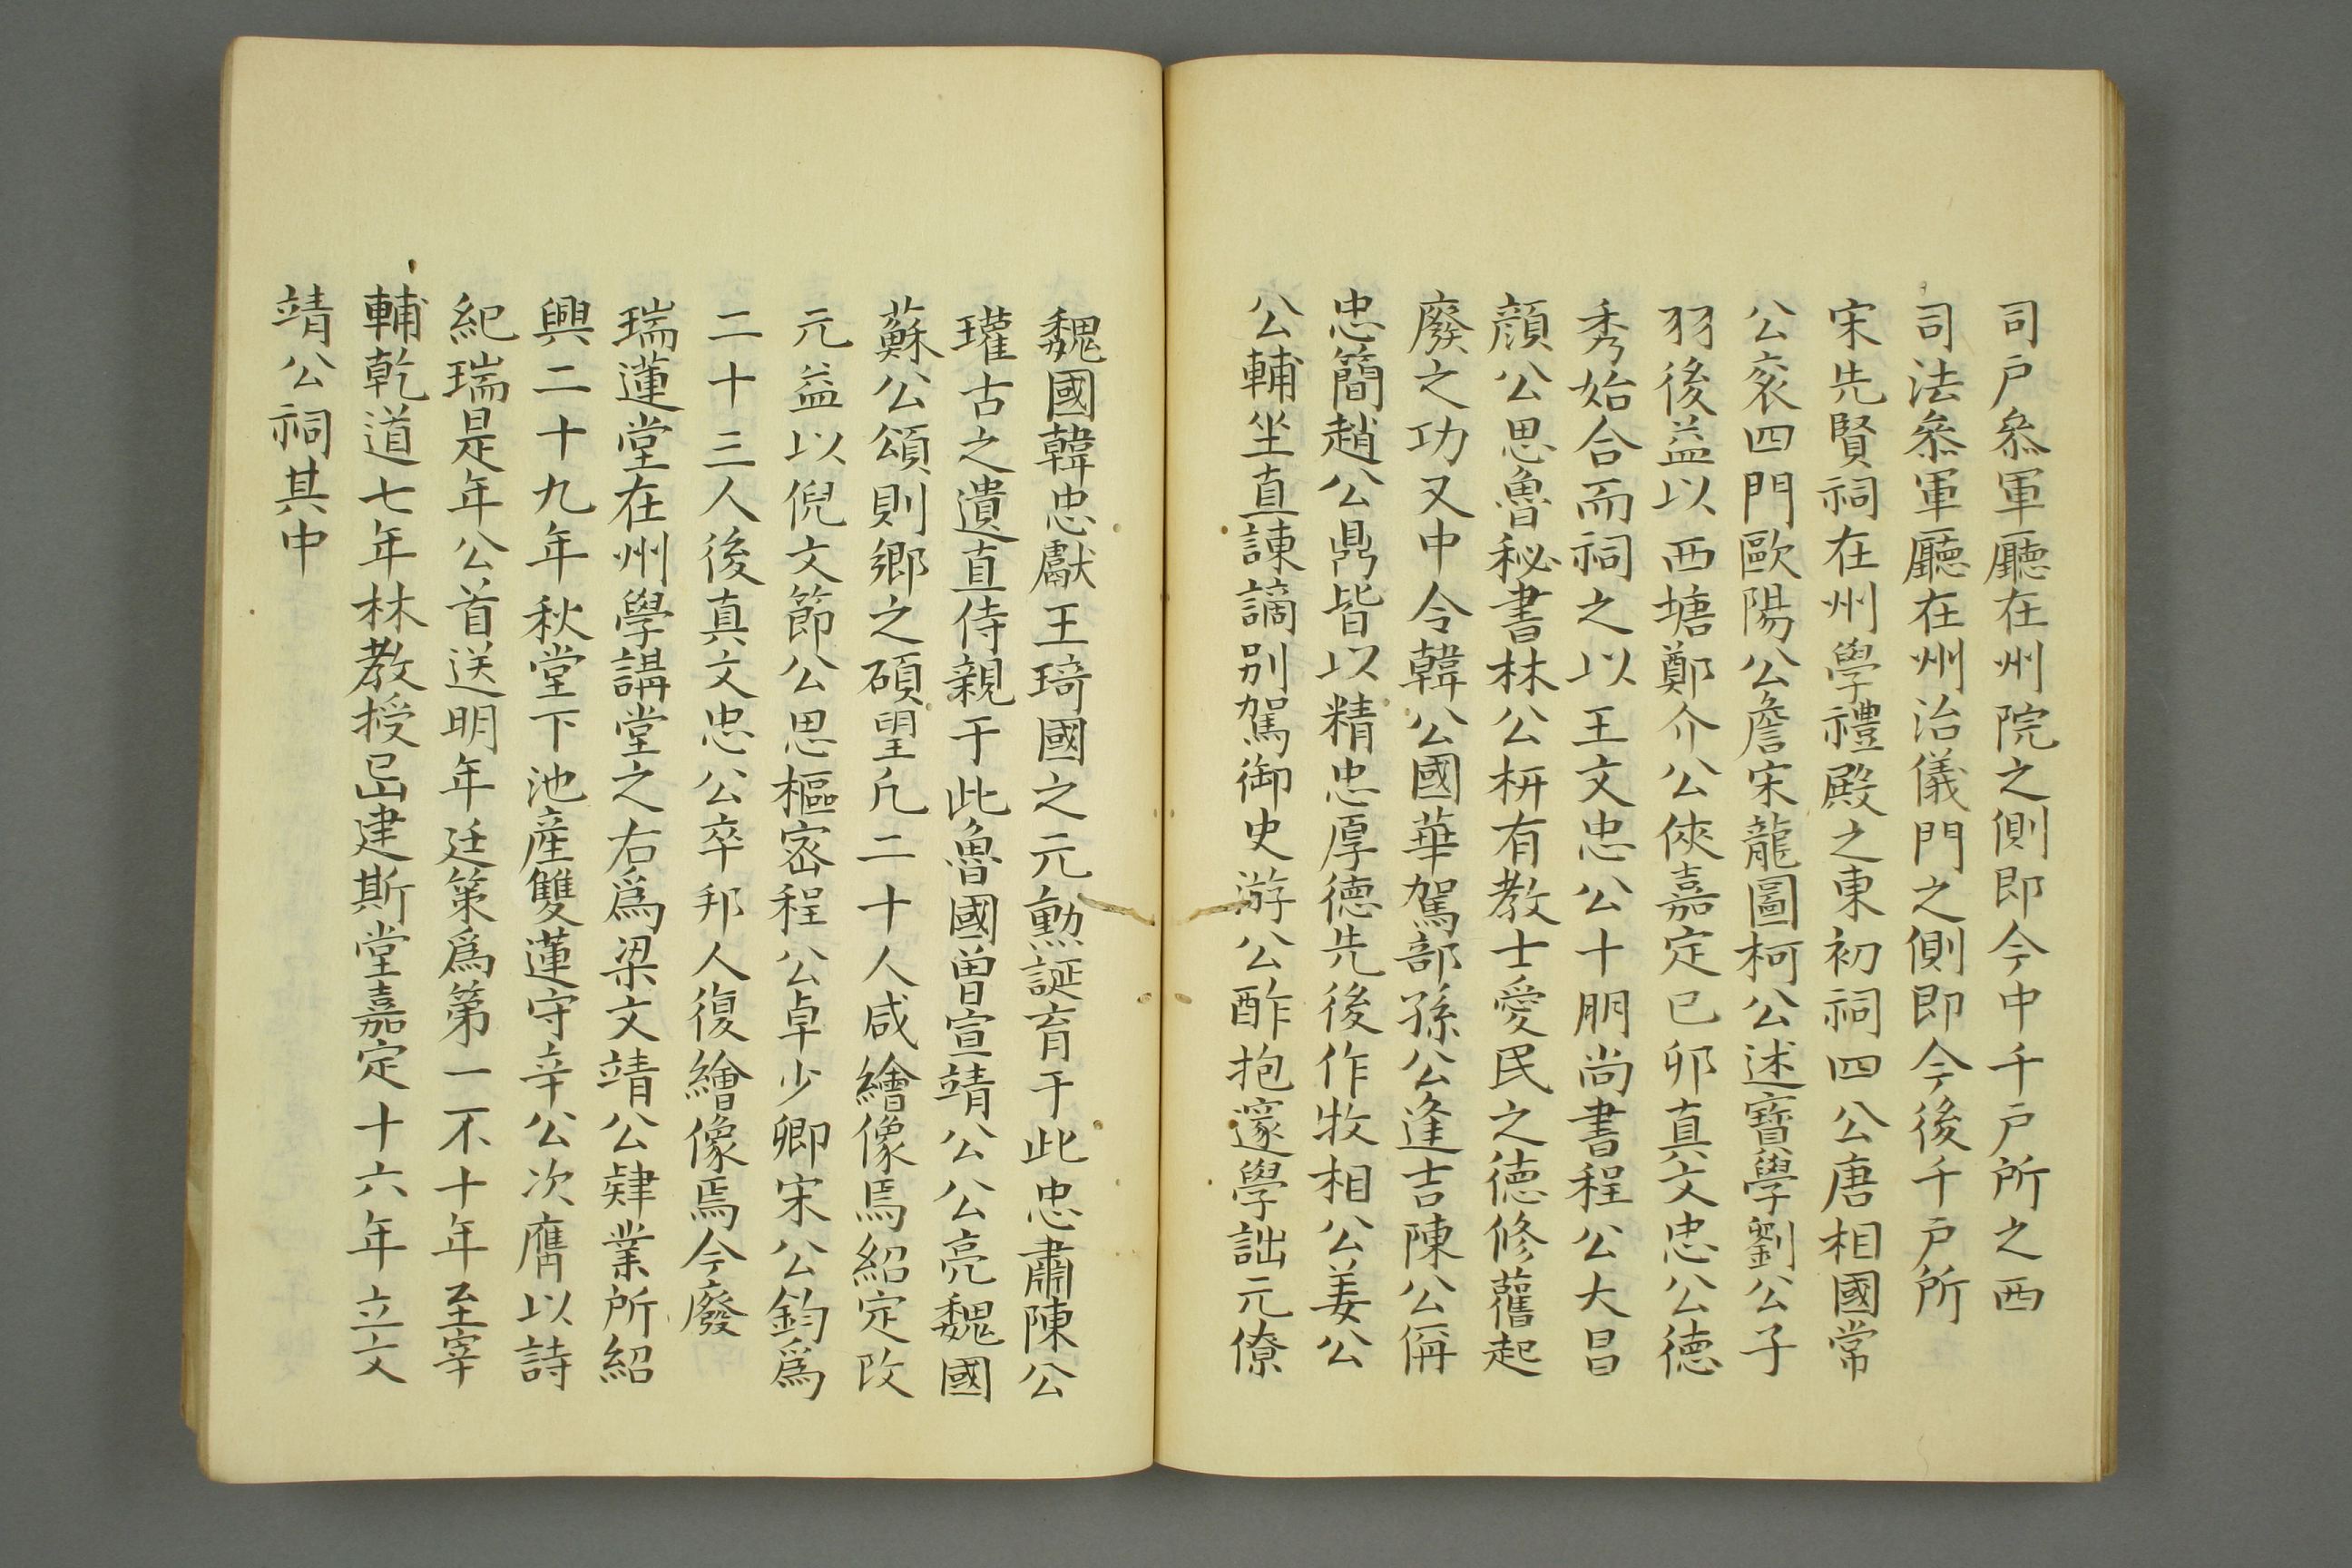 司戶叅軍廳在州院之側即今中千戶所之西
司法叅軍廳在州治儀門之側即今後千戶所
宋先賢祠在州學禮殿之東初祠四公唐相國常
公衮四門歐陽公詹宋龍圖柯公述寶學劉公子
羽後益以西塘鄭介公俠嘉定已夘真文忠公德
秀始合而祠之以王文忠公十朋尚書程公大昌
顔公思魯秘書林公枅有教士愛民之德修舊起
廢之功又中令韓公國華駕部孫公逢吉陳公偁
忠簡趙公鼎皆以精忠厚德先後作牧相公姜公
公輔坐直諫謫别駕御史游公酢抱邃學詘元僚
魏國韓忠獻王琦國之元勲誕育于此忠肅陳公
瓘古之遺直侍親于此魯國曾宣靖公公亮魏國
蘇公頌則鄉之碩望凡二十人咸繪像焉紹定改
元益以倪文節公思樞宻程公卓少卿宋公鈞爲
二十三人後真文忠公卒邦人復繪像焉今廢
瑞蓮堂在州學講堂之右爲梁文靖公肄業所紹
興二十九年秋堂下池產雙蓮守辛公次膺以詩
紀瑞是年公首送明年廷策爲第一不十年至宰
輔乾道七年林教授㠯建斯堂嘉定十六年立文
靖公祠其中